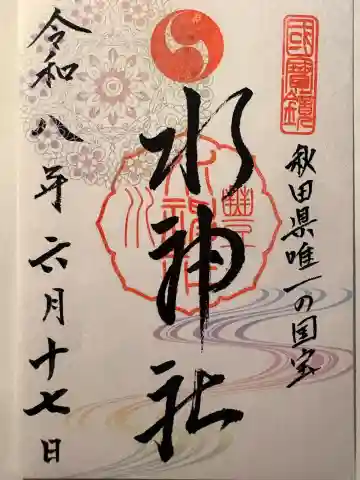 國寶鏡
秋田県唯一の国宝
水神社
令和八年六月十七日